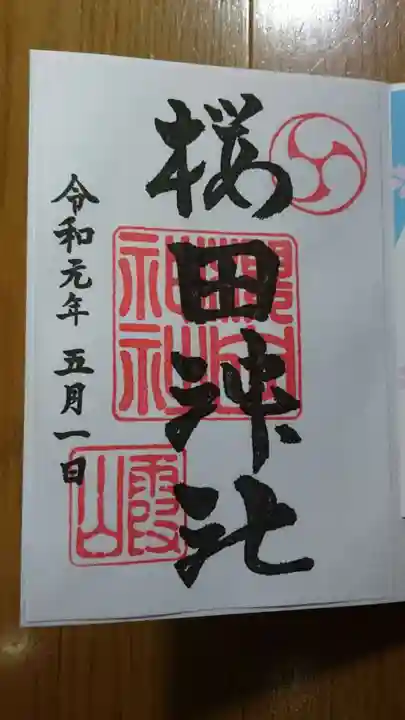 桜田神社
櫻田
神社
霞山
令和元年 五月一日